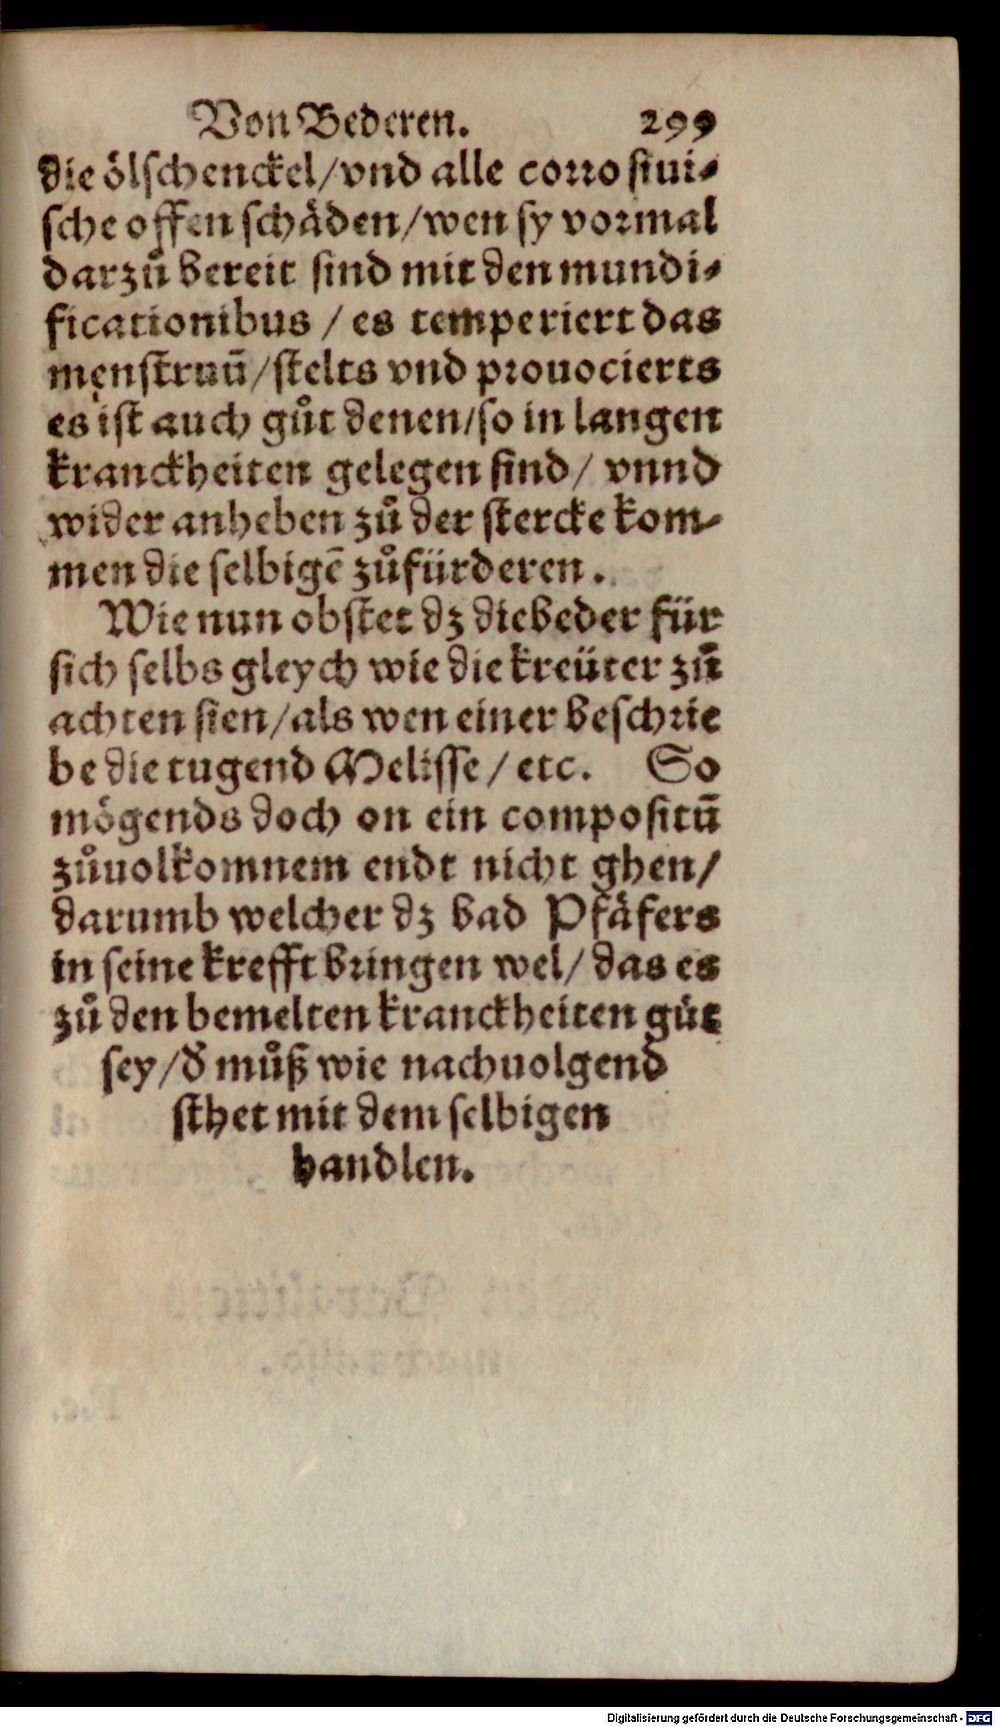 Von Bederen. 299
die ölschenckel/vnd alle corrosiui⸗
sche offen schäden/wen sy vormal
darzů bereit sind mit den mundi⸗
ficationibus / es temperiert das
menstruū/stelts vnd prouocierts
es ist auch gůt denen/so in langen
kranckheiten gelegen sind/ vnnd
wider anheben zů der stercke kom⸗
men die selbigē zůfürderen.
Wie nun obstet dz die beder für
sich selbs gleych wie die kreüter zů
achten sien/als wen einer beschrie
be die tugend Melisse/etc. So
mögends doch on ein compositū
zůuolkomnem endt nicht ghen/
darumb welcher dz bad Pfäfers
in seine krefft bringen wel/das es
zů den bemelten kranckheiten gůt
sey/d̓ můß wie nachuolgend
sthet mit dem selbigen
handlen.
Digitalisierung gefördert durch die Deutsche Forschungsgemeinschaft - DFG